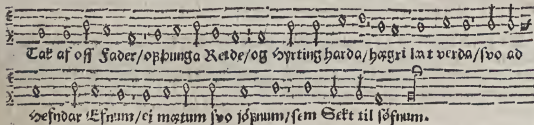 Tak af oss Fader/oþþunga Reide/og Hyrting harda/hægri læt verda/svo ad
Hefndar Efnum/ei mætum svo jöpnum/sem Sekt til söfnum.